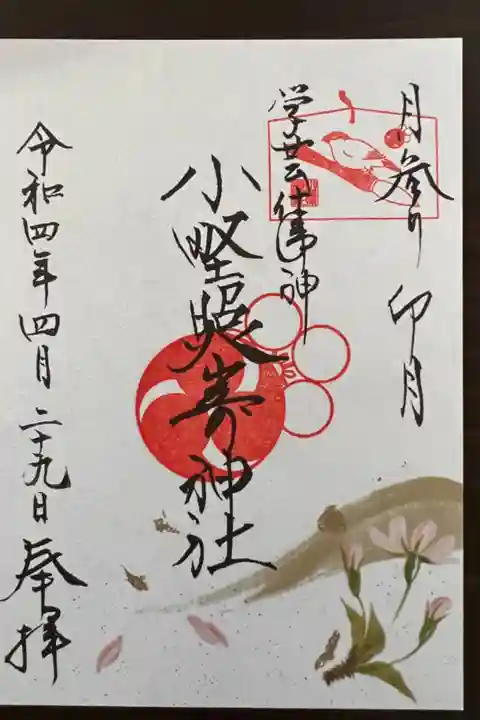 月参り 卯月
学芸健神
小野照崎神社
令和四年四月二十九日 奉拝